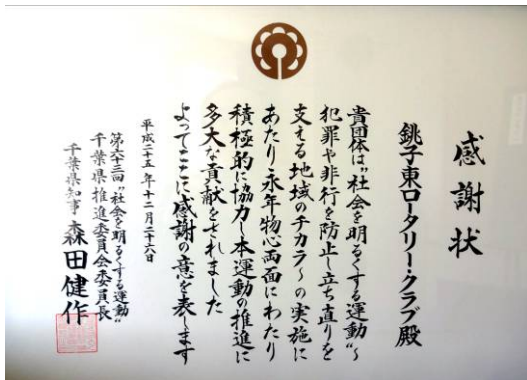 感謝状
銚子東ロータリー・クラブ殿
貴団体は“社会を明るくする運動”～
犯罪や非行を防止し立ち直りを
支える地域のチカラ～の実施に
あたり永年物心両面にわたり
積極的に協力し本運動の推進に
多大な貢献をされました
よってここに感謝の意を表します
平成二十五年十二月二十六日
第六十三回“社会を明るくする運動”
千葉県推進委員会委員長
千葉県知事 森田健作